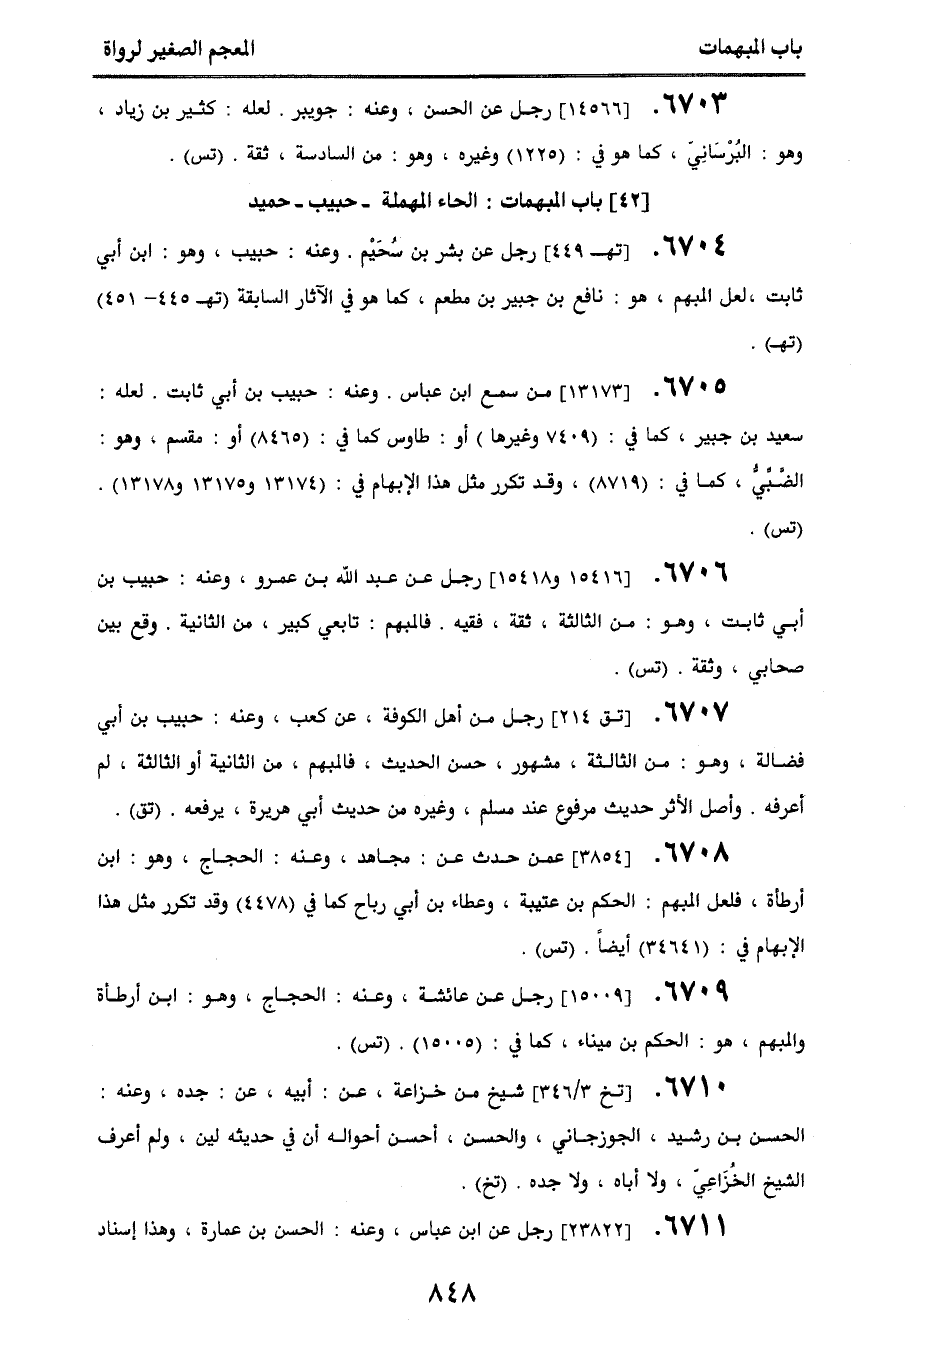 باب المبهمات المعجم الصغير لرواة
٦٧٠٣. [١٤٥٦٦] رجل عن الحسن ، وعنه : جويبر . لعله : كثير بن زياد ،
وهو : البُرْسَانِيّ ، كما هو في : (١٢٢٥) وغيره ، وهو : من السادسة ، ثقة . (تس) .
[٤٢] باب المبهمات : الحاء المهملة ـ حبيب ـ حميد
٦٧٠٤. [تهـ ٤٤٩] رجل عن بشر بن سُحَيْم . وعنه : حبيب ، وهو : ابن أبي
ثابت ،لعل المبهم ، هو : نافع بن جبير بن مطعم ، كما هو في الآثار السابقة (تهـ ٤٤٥– ٤٥١)
(تهـ) .
٦٧٠٥. [١٣١٧٣] من سمع ابن عباس . وعنه : حبيب بن أبي ثابت . لعله :
سعيد بن جبير ، كما في : (٧٤٠٩ وغيرها ) أو : طاوس كما في : (٨٤٦٥) أو : مقسم ، وهو :
الضَّبِّيُّ ، كما في : (٨٧١٩) ، وقد تكرر مثل هذا الإبهام في : (١٣١٧٤ و١٣١٧٥ و١٣١٧٨) .
(تس) .
٦٧٠٦. [١٥٤١٦ و١٥٤١٨] رجل عن عبد الله بن عمرو ، وعنه : حبيب بن
أبي ثابت ، وهو : من الثالثة ، ثقة ، فقيه . فالمبهم : تابعي كبير ، من الثانية . وقع بين
صحابي ، وثقة . (تس) .
٦٧٠٧. [تق ٢١٤] رجل من أهل الكوفة ، عن كعب ، وعنه : حبيب بن أبي
فضالة ، وهو : من الثالثة ، مشهور ، حسن الحديث ، فالمبهم ، من الثانية أو الثالثة ، لم
أعرفه . وأصل الأثر حديث مرفوع عند مسلم ، وغيره من حديث أبي هريرة ، يرفعه . (تق) .
٦٧٠٨. [٣٨٥٤] عمن حدث عن : مجاهد ، وعنه : الحجاج ، وهو : ابن
أرطأة ، فلعل المبهم : الحكم بن عتيبة ، وعطاء بن أبي رباح كما في (٤٤٧٨) وقد تكرر مثل هذا
الإبهام في : (٣٤٦٤١) أيضاً . (تس) .
٦٧٠٩. [١٥٠٠٩] رجل عن عائشة ، وعنه : الحجاج ، وهو : ابن أرطأة
والمبهم ، هو : الحكم بن ميناء ، كما في : (١٥٠٠٥) . (تس) .
٦٧١٠. [تخ ٣٤٦/٣] شيخ من خزاعة ، عن : أبيه ، عن : جده ، وعنه :
الحسن بن رشيد ، الجوزجاني ، والحسن ، أحسن أحواله أن في حديثه لين ، ولم أعرف
الشيخ الخُزَاعِيّ ، ولا أباه ، ولا جده . (تخ) .
٦٧١١. [٢٣٨٢٢] رجل عن ابن عباس ، وعنه : الحسن بن عمارة ، وهذا إسناد
٨٤٨